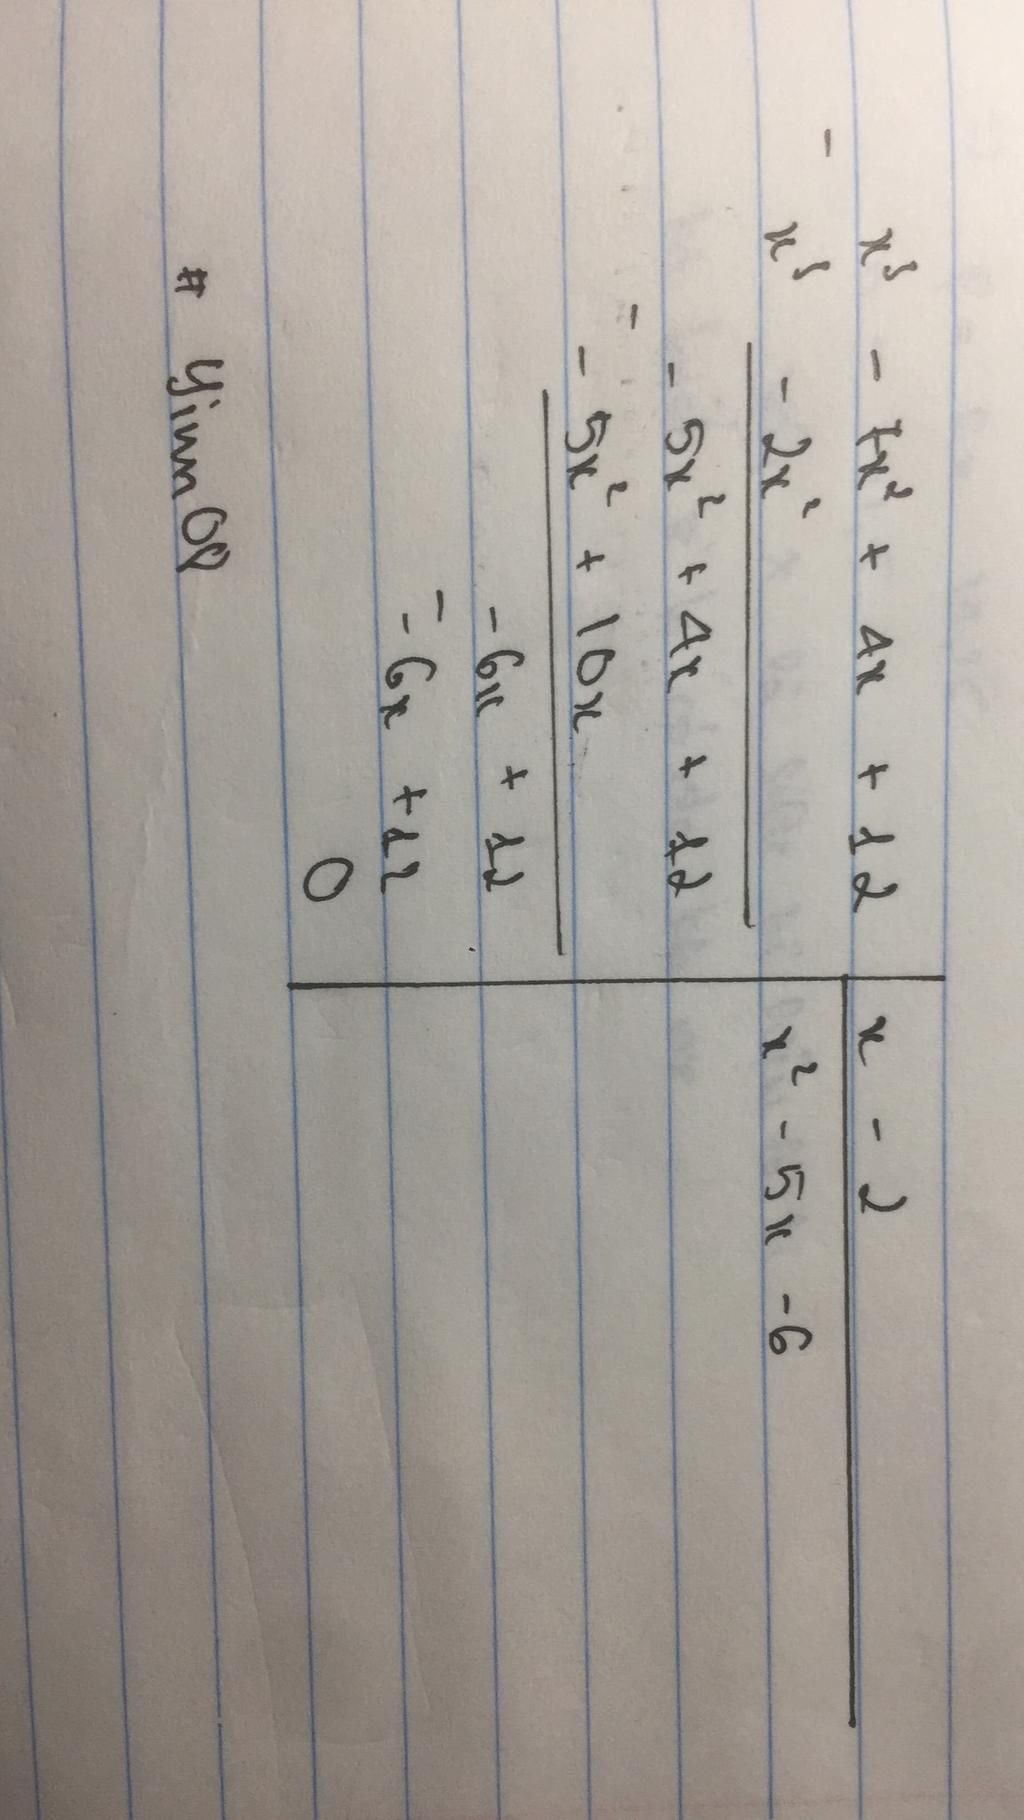 x³ - 7x² + 4x + 12 | x - 2
-
x³ - 2x² | x² - 5x - 6
- 5x² + 4x + 12
-
- 5x² + 10x
- 6x + 12
-
- 6x + 12
0